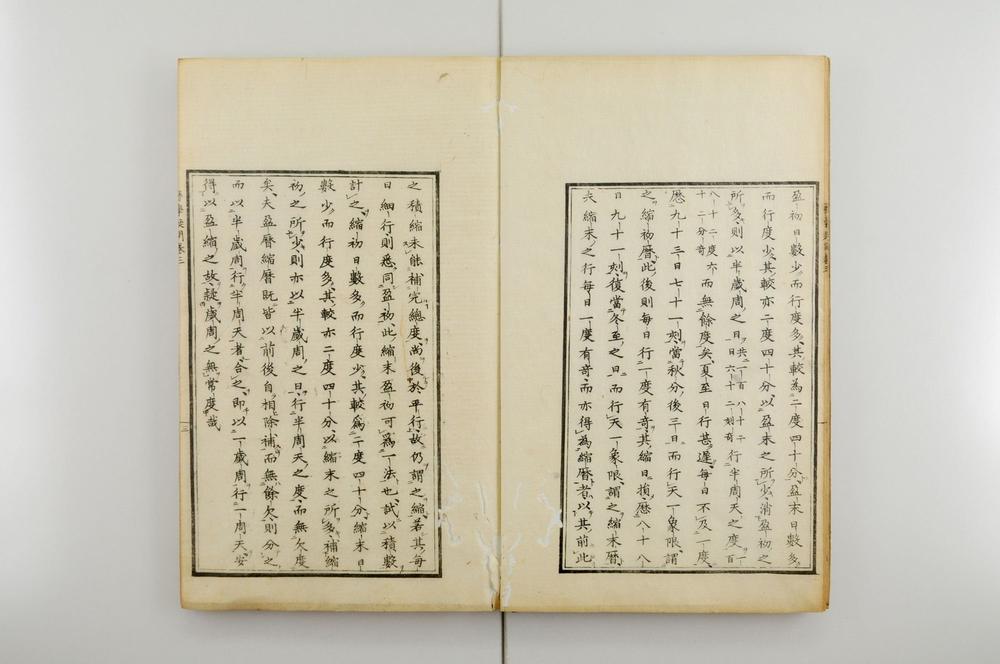 盈初日數少而行度多其較為二度四十分盈末日數多
而行度少其較亦二度四十分以盈末之所少消盈初之
所多則以半歲周之日共一百八十二日六十二刻奇行半周天之度百一
八十二度六十二分奇亦而無餘度矣夏至日行甚遲每日不及一度
曆九十三日七十一刻當秋分後三日而行天一象限謂
之縮初曆此後則每日行一度有奇其縮日損曆八十八
日九十一刻復當冬至之日而行天一象限謂之縮末曆
夫縮末之行每日一度有奇而亦得為縮曆者以其前此
之積縮未能補完總度尚後於平行故仍謂之縮若其每
日細行則悉同盈初此縮末盈初可為一法也試以積數
計之縮初日數多而行度少其較為二度四十分縮末日
數少而行度多其較亦二度四十分以縮末之所多補縮
初之所少則亦以半歲周之日行半周天之度而無欠度
矣夫盈曆縮曆既皆以前後自相除補而無餘欠則分之
而以半歲周行半周天者合之即以一歲周行一周天安
得以盈縮之故疑歲周之無常度哉
三